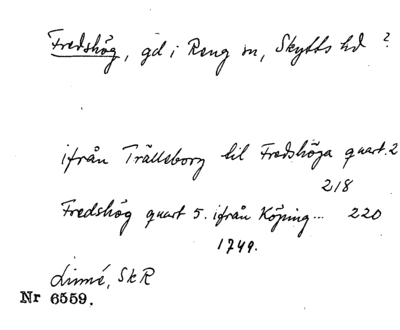 Fredshög, gd i Reng sn, Skytts hd ?
ifrån Trälleborg til Fredshöga quart. 2
218
Fredshög quart 5. ifrån Köping... 220
1749.
Linné, SkR
Nr 6559.